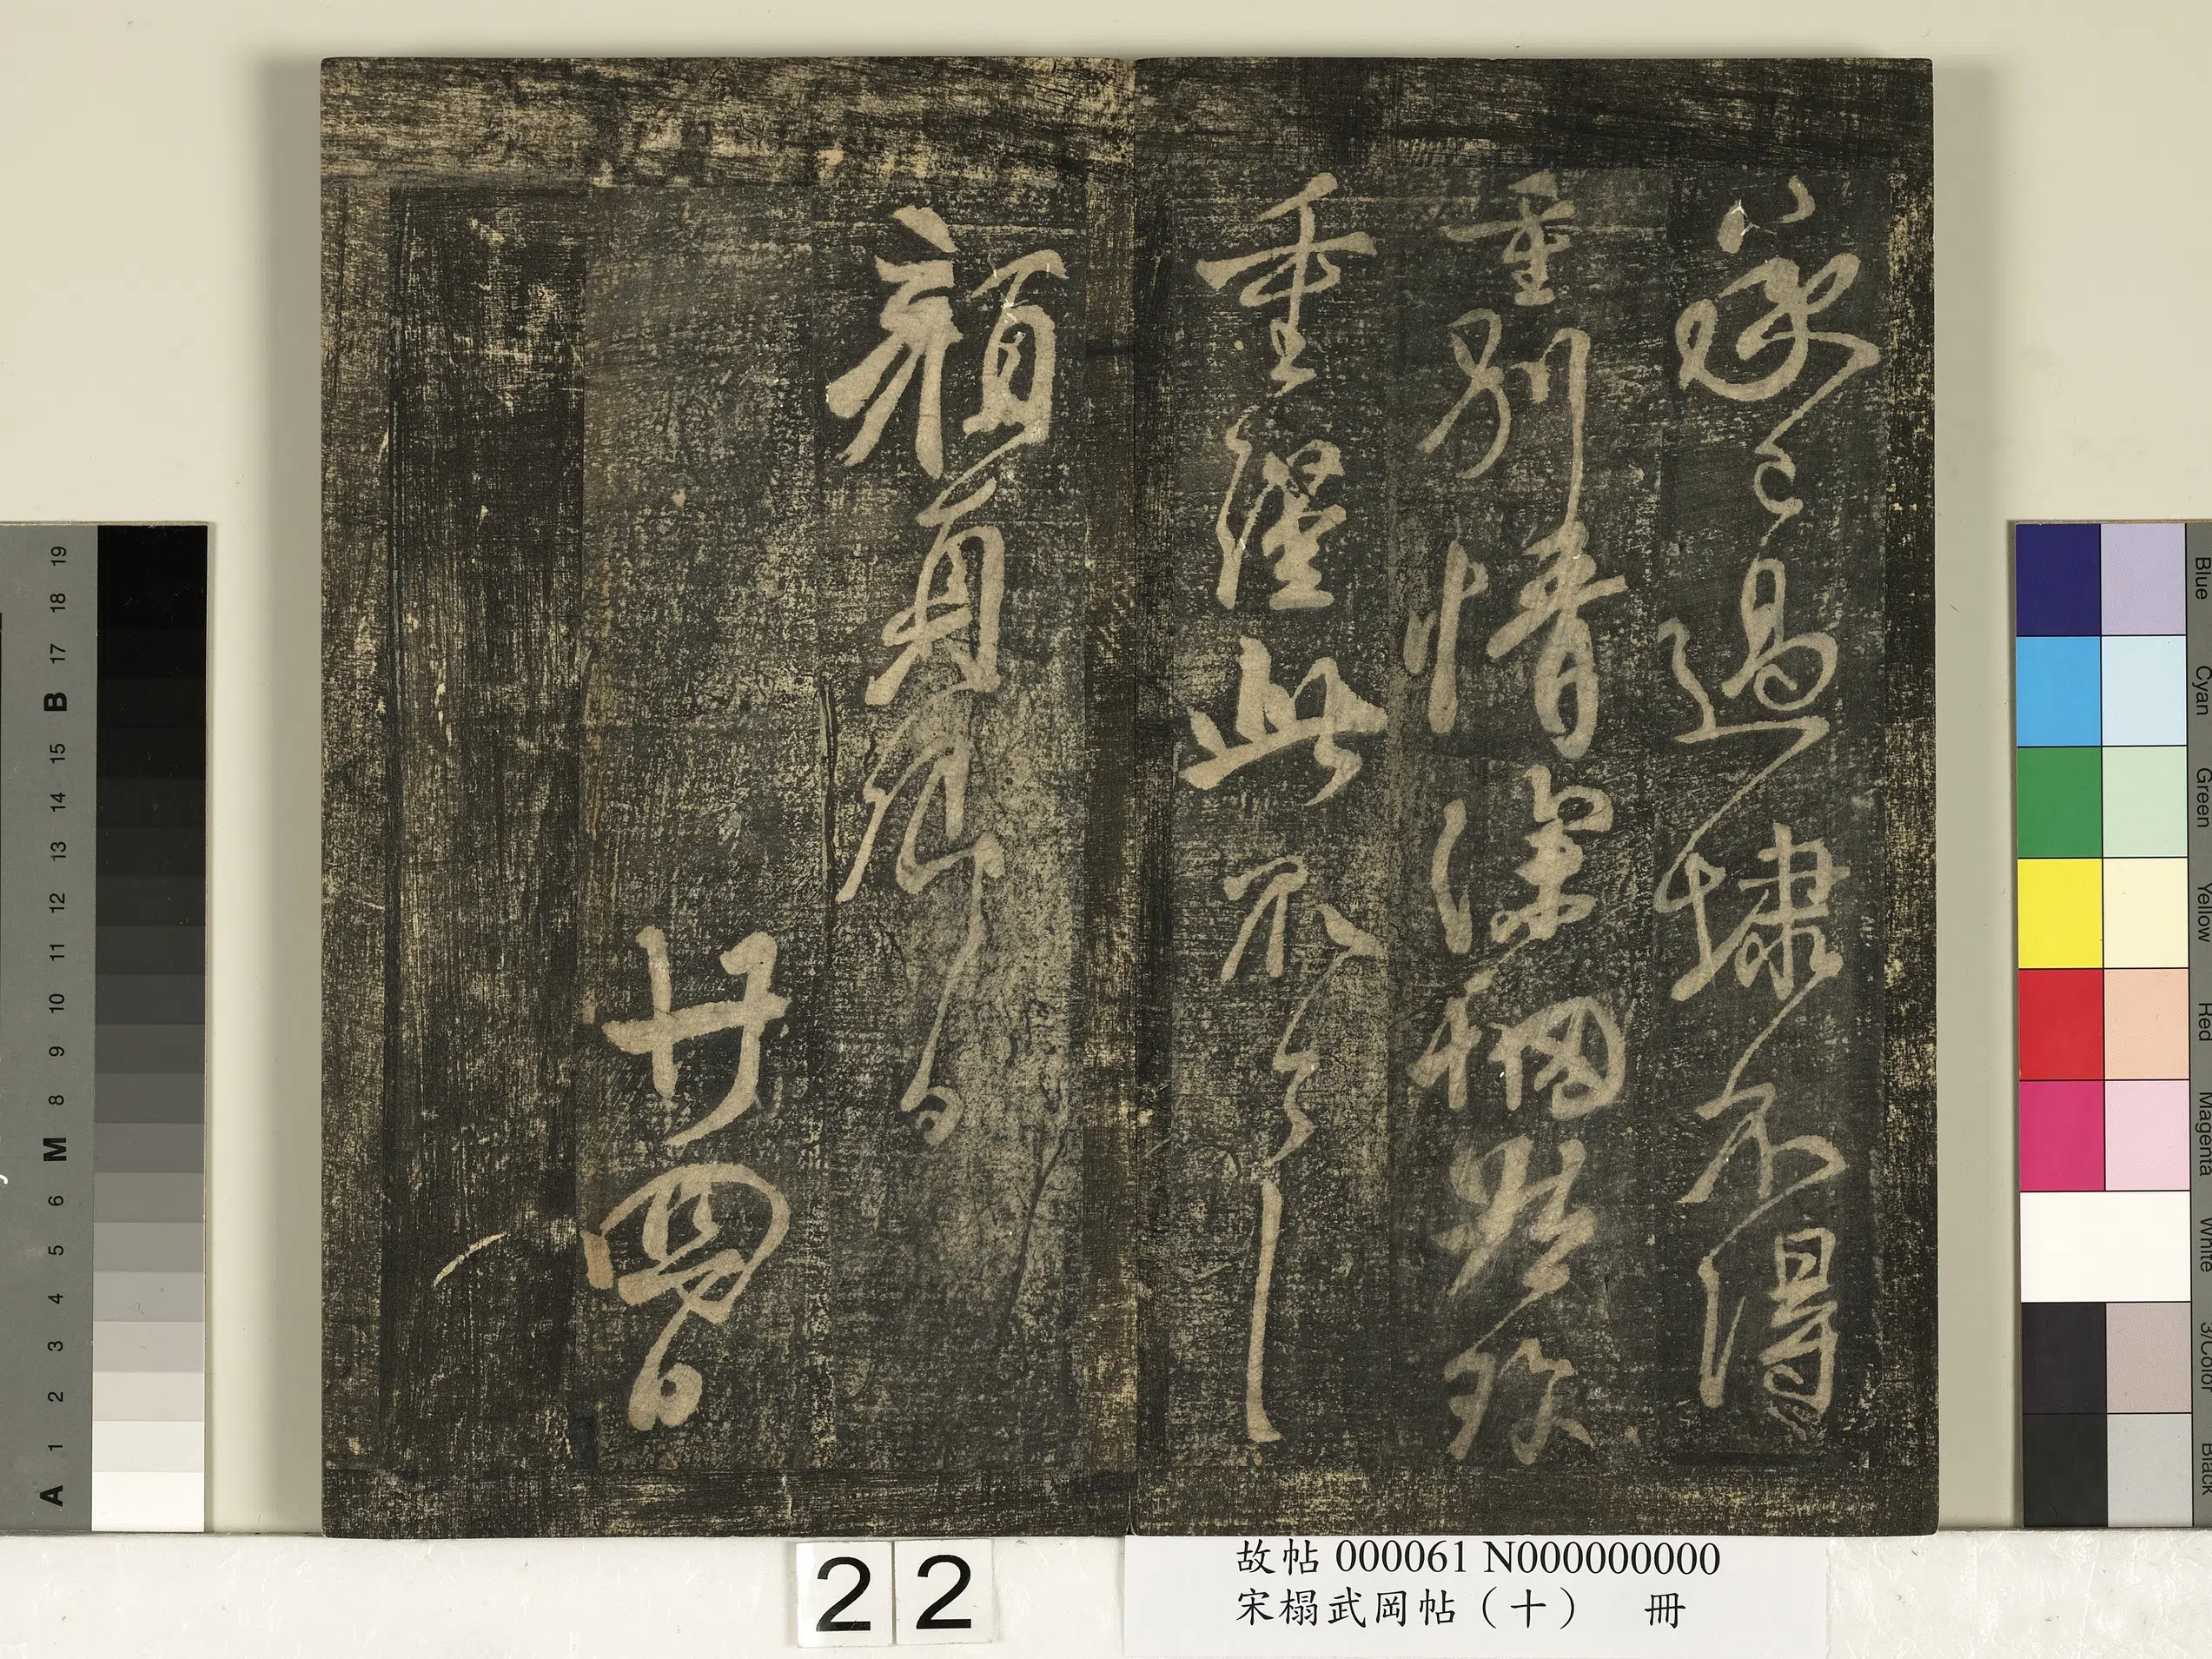 承已過埭不得
重別情深惘然珍
重此不
顏真卿
廿四日
22
故帖 000061 N000000000
宋榻武岡帖（十） 冊
19
18
17
B
15
14
13
12
11
10
9
8
M
6
5
4
3
2
1
A
Blue
Cyan
Green
Yellow
Red
Magenta
White
3/Color
Black